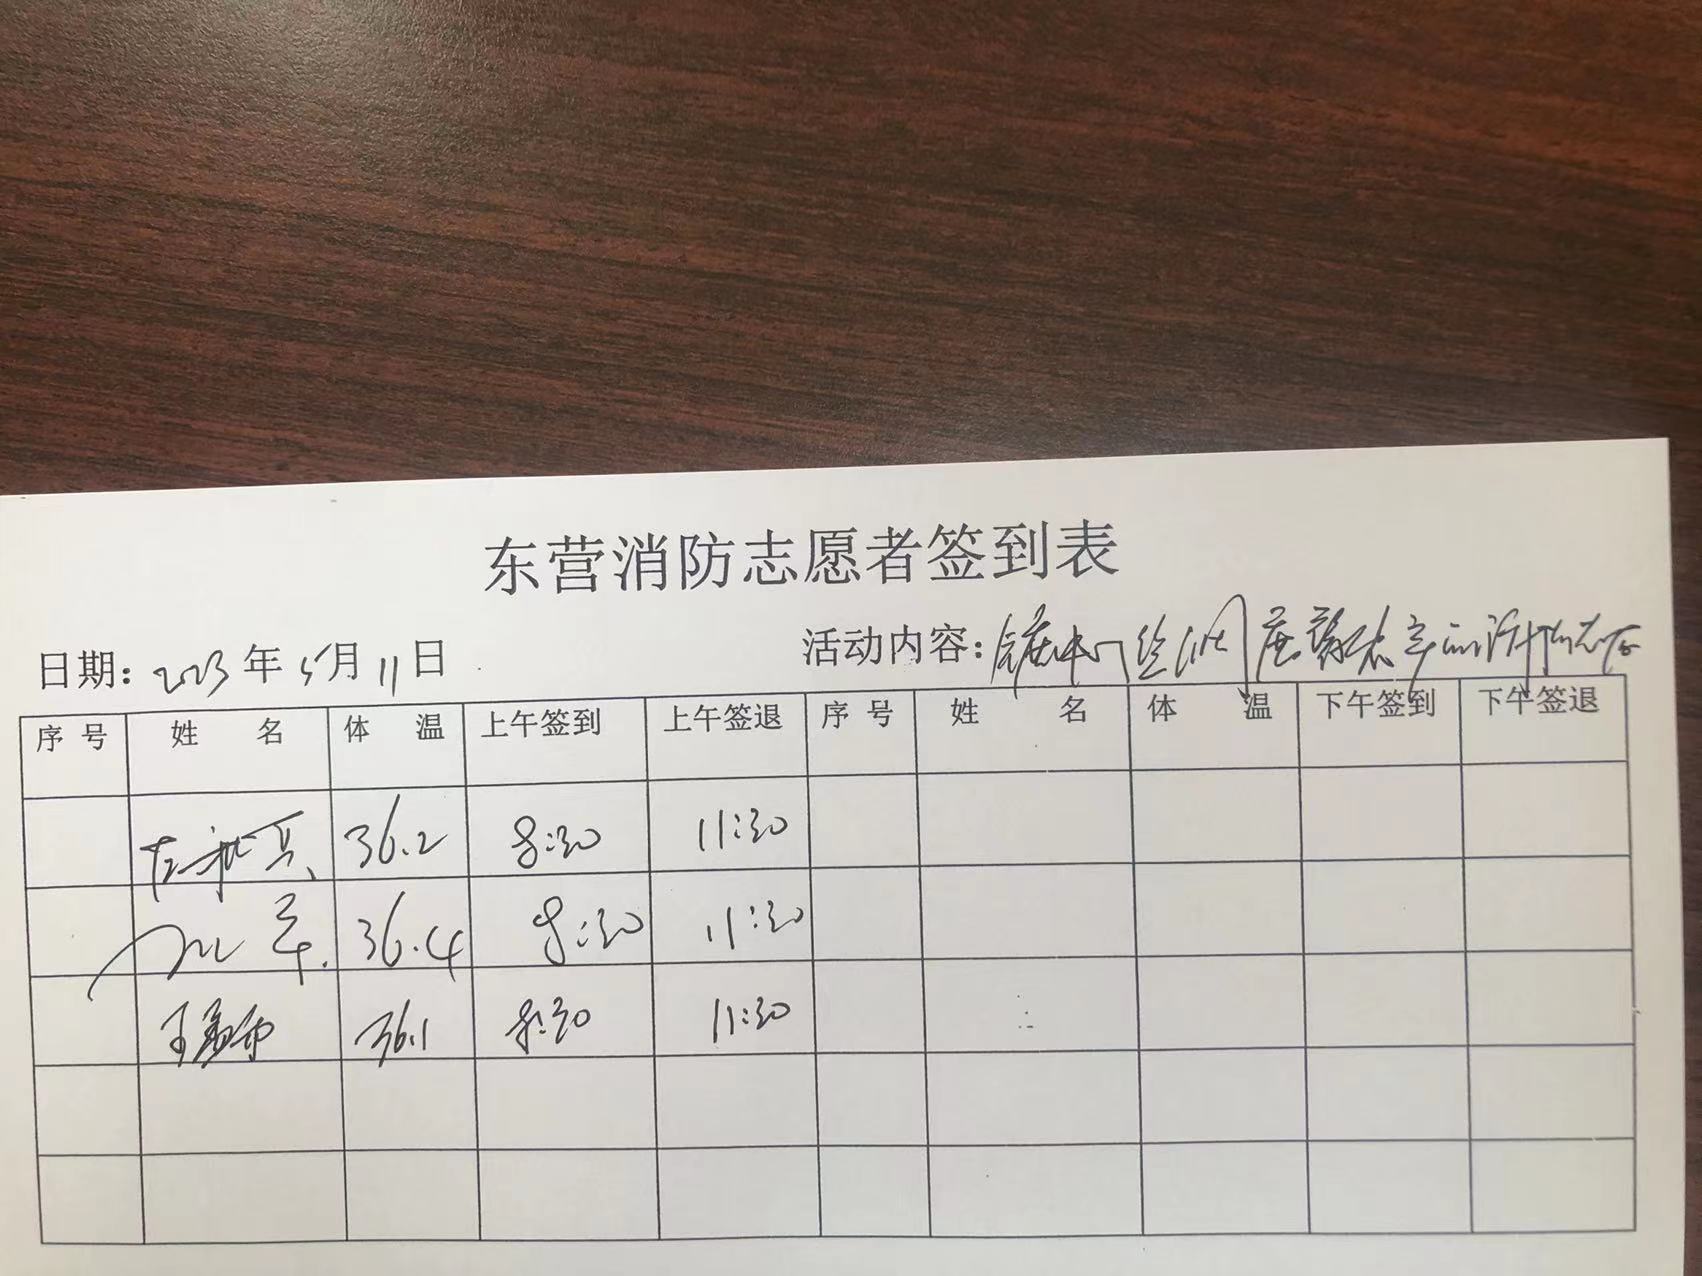 东营消防志愿者签到表
日期: 2023年5月11日 活动内容:
序号 姓名 体温 上午签到 上午签退 序号 姓名 体温 下午签到 下午签退
36.2 8:30 11:30
36.4 8:30 11:30
36.1 8:30 11:30